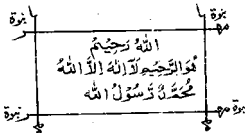 نبوة نبوة
اللهُ رَحِيْمٌ
هُوَ الرَّحِيْمُ لَآ اِلٰهَ اِلَّا اللهُ
مُحَمَّدٌ رَّسُوْلُ اللهِ
نبوة نبوة